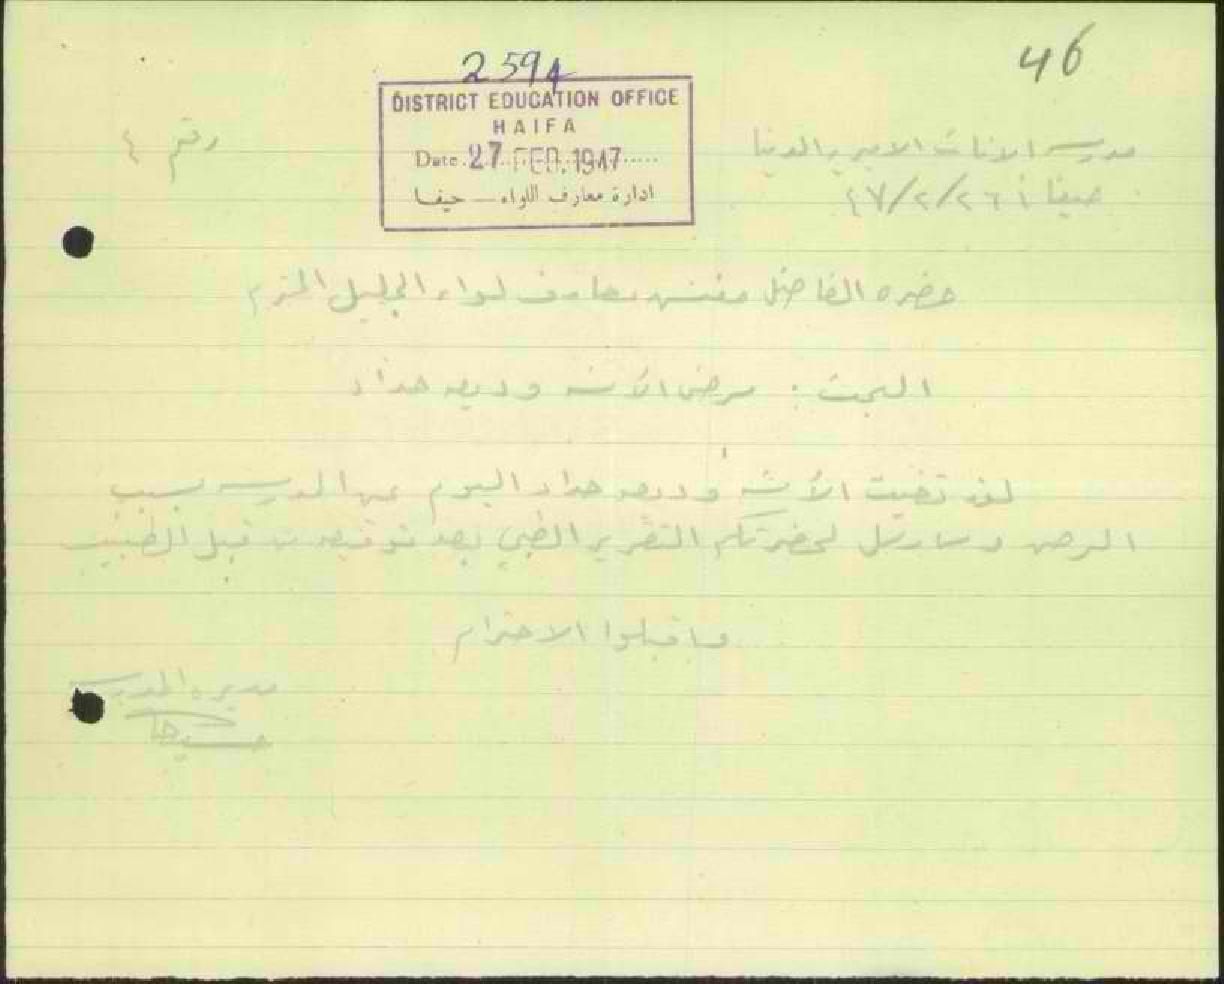 46
2594
DISTRICT EDUCATION OFFICE
HAIFA
Date 27 FEB. 1947
ادارة معارف اللواء — حيفا
مدرسه الاناث الاميريه الدنيا
رقم ٤
حيفا ٢٦/٢/٤٧
حضره الفاضل مفتش معارف لواء الجليل المحترم
البحث : مرض الآنسه وديعه حداد
لقد تغيبت الآنسه وديعه حداد اليوم عن المدرسه بسبب
المرض وسارسل لحضرتكم التقرير الطبي بعد توقيعه من قبل الطبيب
واقبلوا الاحترام
مديره المدرسه